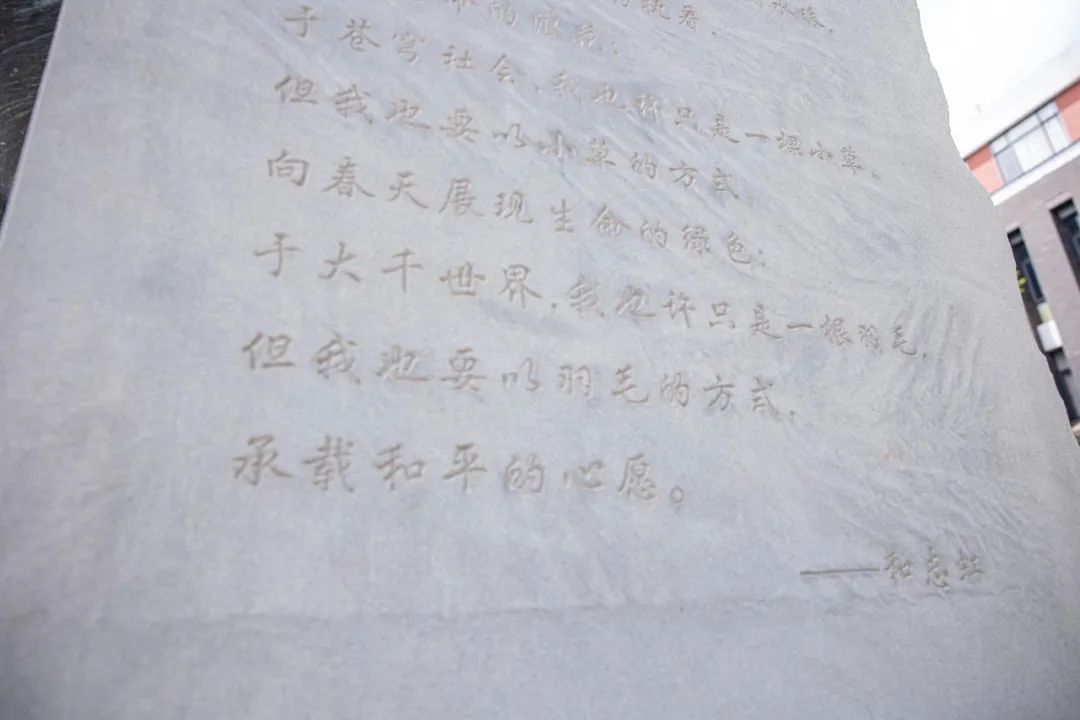 的执着,
的顾
于苍穹社会,我也许只是一棵小草。
但我也要以小草的方式
向春天展现生命的绿色;
于大千世界,我也许只是一根羽毛,
但我也要以羽毛的方式,
承载和平的心愿。
——和志